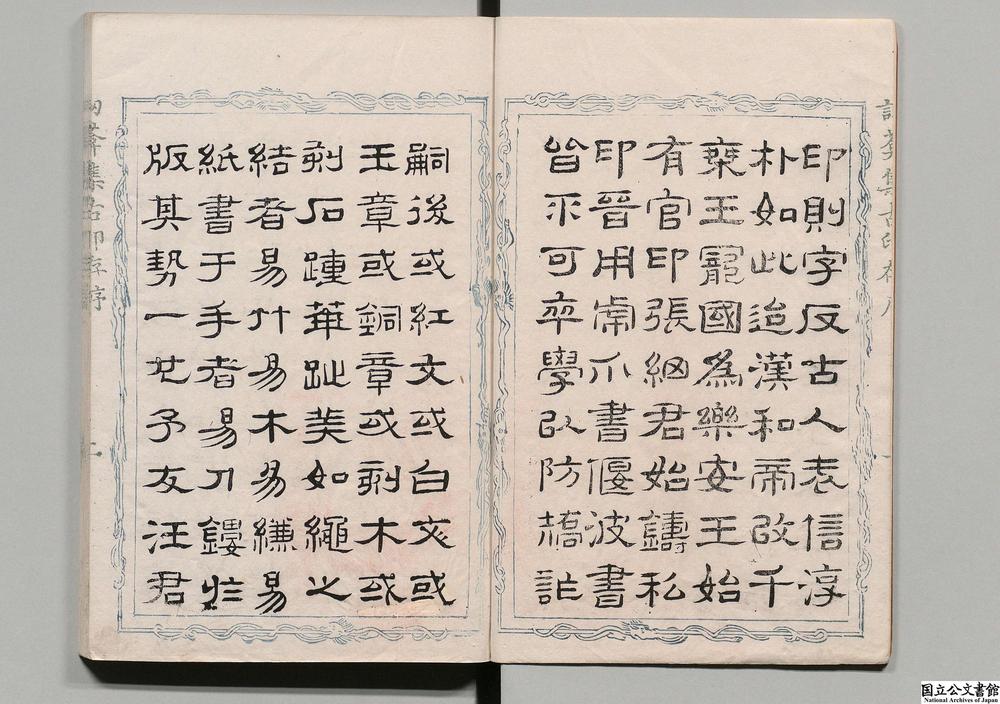 印則字反古人表信淳
朴如此迨漢和帝改千
椉王寵國為樂安王始
有官印張綱君始鑄私
印晉用虎爪書偃波書
皆不可卒學以防矯詐
嗣後或紅文或白文或
玉章或銅章或刻木或
刻石踵華趾美如繩之
結者易竹易木易縑易
紙書于手者易刀鏤於
版其勢一也予友汪君
集古印存序
国立公文書館
National Archives of Japan